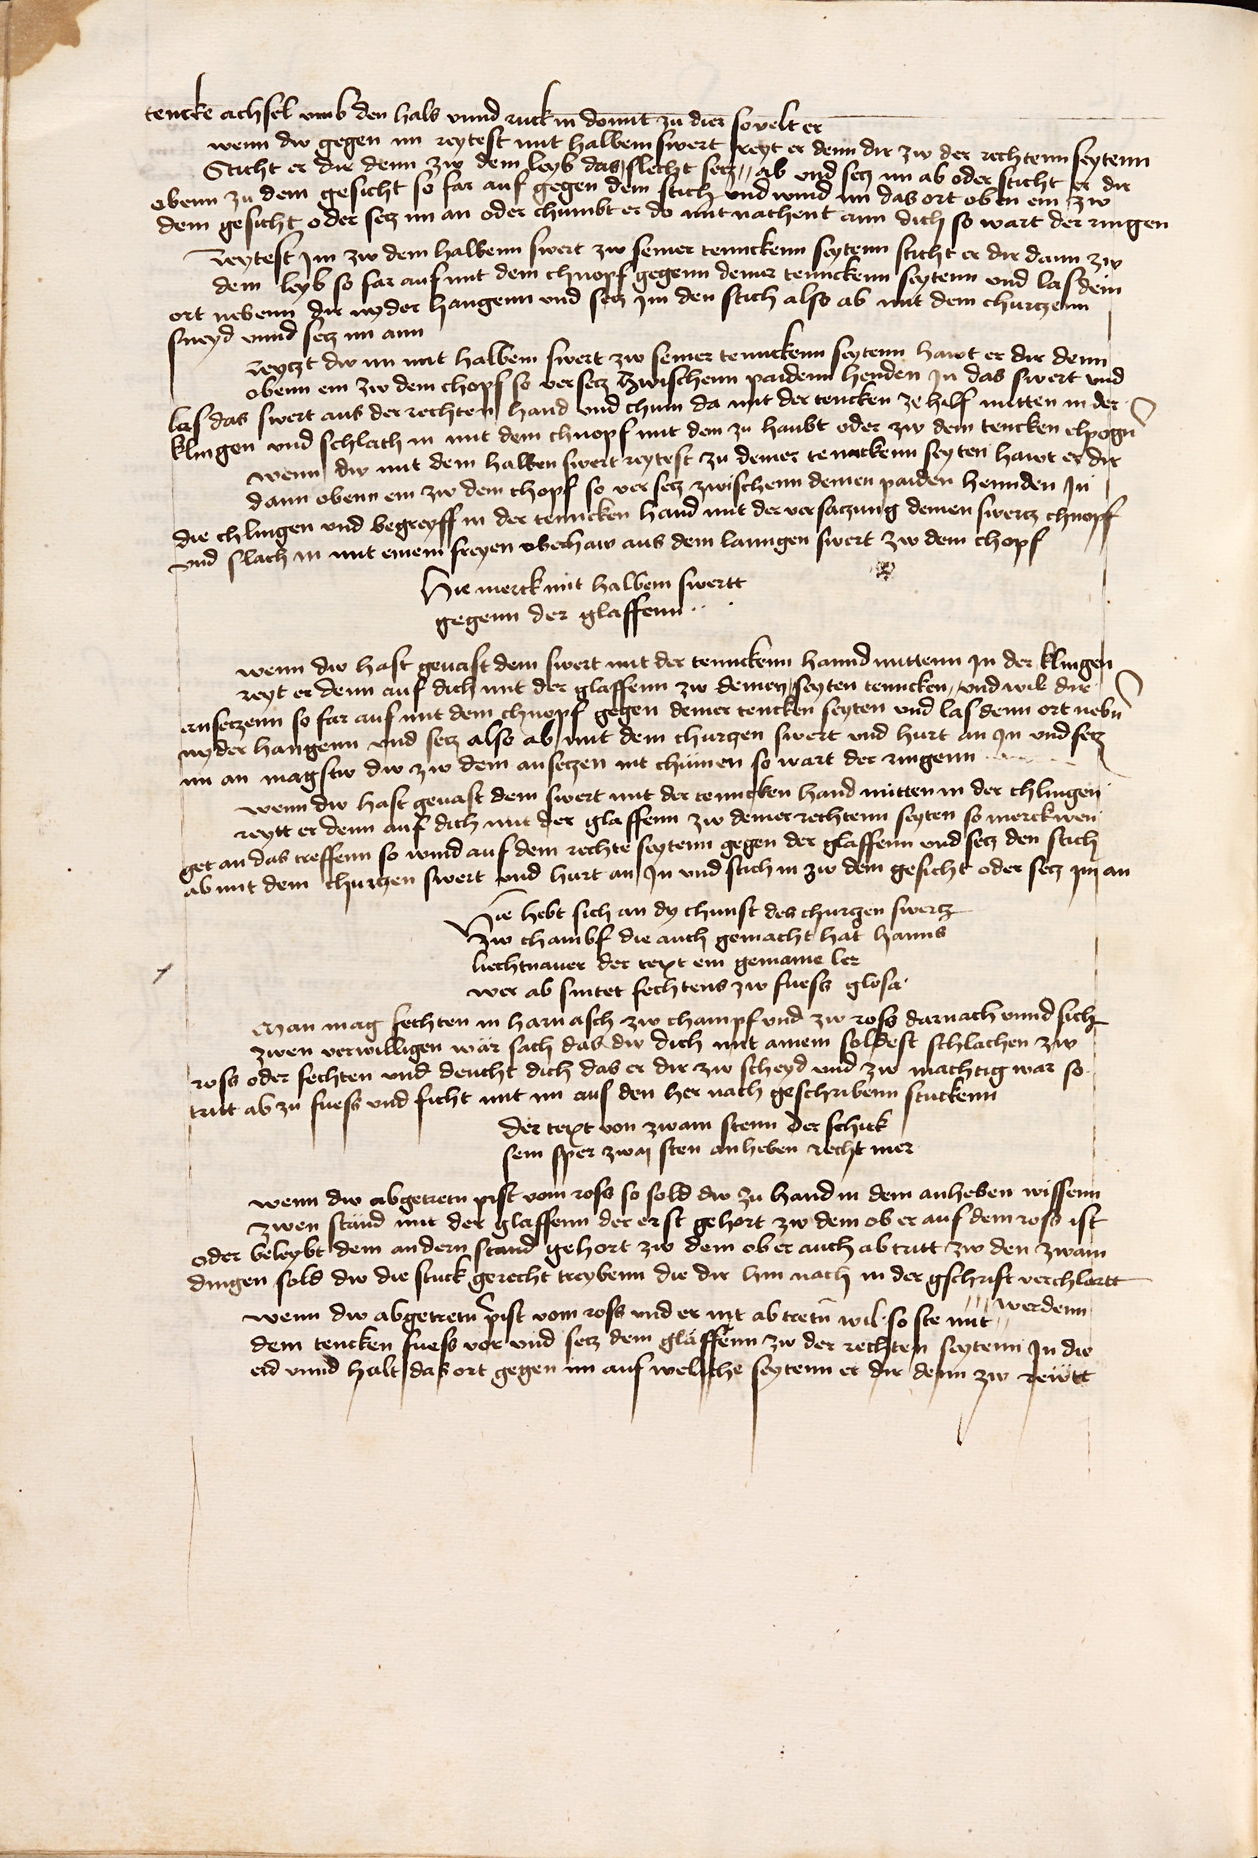 tencke achsel vmb den hals vnnd ruck in domit zu dier so velt er
wenn dw gegen im reytest mit halbem swert reyt er denn dir zw der rechtenn seytenn
Sticht er dir denn zw dem leyb das slecht setz ab vnd setz im ab oder sticht er dir
obenn zu dem gesicht so far auf gegen dem stich vnd wind im das ort oben ein zw
dem gesicht oder setz im an oder chumbt er do mit nachent ann dich so wart der ringen
reytest Im zw dem halbenn swert zw seiner tennckenn seytenn sticht er dir dann zw
dem leyb so far auf mit dem chnopf gegenn deiner tennckenn seytenn vnd las dein
ort nebenn dir nyder hangenn vnd setz Im den stich also ab mit dem churtzenn
sneyd vnnd setz im ann
reytzt dw im mit halbem swert zw seiner tennckenn seytenn hawt er dir denn
obenn ein zw dem chopf so versetz zwischenn paidenn henden In das swert vnd
las das swert aus der rechten hand vnd chum da mit der tencken ze hilf mitten in der
klingen vnd schlach in mit dem chnopf mit dem zu haubt oder zw dem tencken elpogn
wenn dw mit dem halben swert reytest zu deiner tennckenn seyten hawt er dir
dann obenn ein zw dem chopf so versetz zwischenn deinen paiden hennden In
die chlingen vnd begreyff in der tenncken hand mit der versatzung deinen swertz chnopf
vnd slach in mit einem freyen oberhaw aus dem lanngen swert zw dem chopf
Hie merck mit halbem swertt
gegenn der glaffenn
wenn dw hast geuast dem swert mit der tennckenn hannd mittenn In der klingen
reyt er denn auf dich mit der glaffenn zw deinen seyten tenncken vnd wil dir
ansetzenn so far auf mit dem chnopf gegen deiner tencken seyten vnd las denn ort nebn
nyder hangenn vnd setz also ab mit dem churtzen swert vnd hurt an In vnd setz
im an magstw dw zw dem ansetzen nit chümen so wart der ringenn
wenn dw hast geuast dem swert mit der tenncken hand mitten in der chlingen
reytt er denn auf dich mit der glaffenn zw deiner rechtenn seyten so merck wen
get an das treffenn so wind auf dem rechte seytenn gegen der glaffenn vnd setz den stich
ab mit dem churtzen swert vnd hurt an In vnd stich in zw dem gesicht oder setz im an
Hie hebt sich an dy chunst des churtzen swertz
zw chambf die auch gemacht hat hanns
liechtnauer der text ein gemaine ler
wer ab sintet fechtens zw fuess glosa
Man mag fechten in harnasch zw champf vnd zw ross darnach vnnd sich
zwen verwilligen wär sach das dw dich mit ainem soldest schlachen zw
ross oder fechten vnd deucht dich das er dir zw scheyd vnd zw machtig war so
tritt ab zu fuess vnd ficht mit im aus den her nach geschribenn stuckenn
der text von zwain stenn Der schick
sein sper zwai sten anheben recht wer
wenn dw abgetretn pist vom ross so sold dw zu hand in dem anheben wissenn
zwen stännd mit der glaffenn der erst gehort zw dem ob er auf dem ross ist
oder beleybt dem andern stand gehort zw dem ob er auch ab tritt zw den zwain
dingen sold dw die stuck gerecht treybenn die dir hin nach in der gschrift verchlärtt
werdenn
wenn dw abgetretn pist vom ross vnd er nit ab tretn wil so ste mit
dem tencken fuess vor vnd setz dem gläffenn zw der rechten seytenn In die
erd vnnd halt das ort gegen im auf weliche seytenn er dir denn zw rewtt